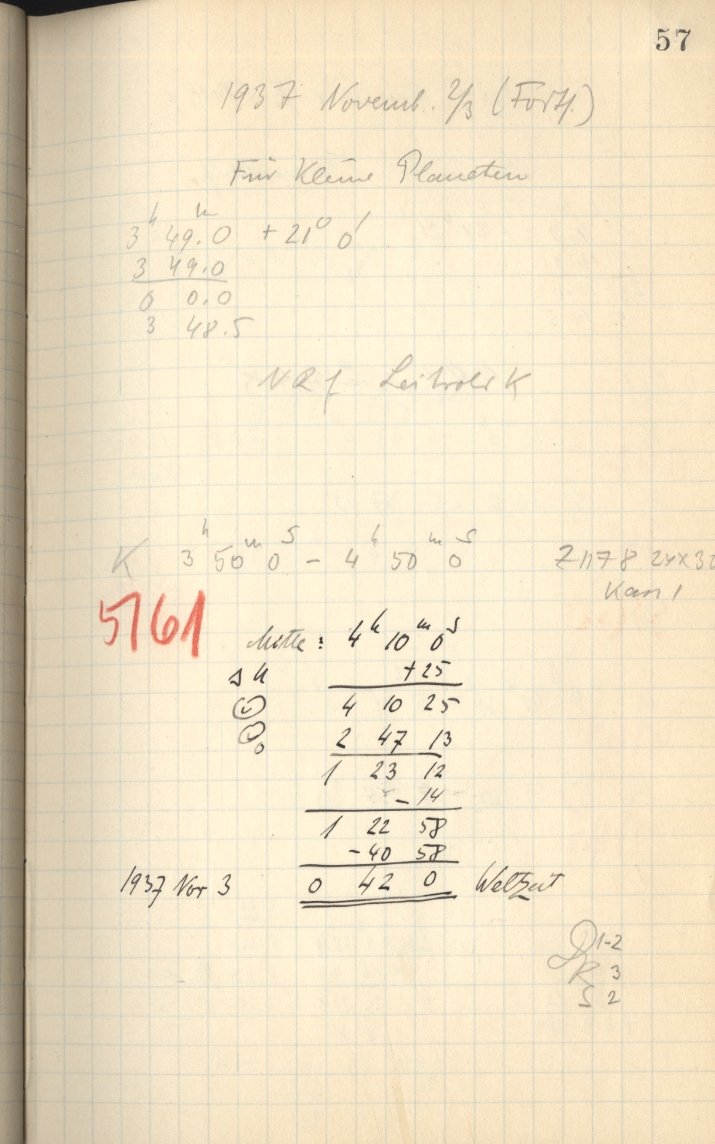 57
1937 Novemb. 2/3 (Fortf.)
Für Kleine Planeten
3h 49m.0 + 21° 0'
3 49.0
0 0.0
3 48.5
K 3h 50m 0s - 4h 50m 0s Z 1178 24x30
Kas 1
5161
Mitte: 4h 10m 0s
Δu +25
4 10 25
2 47 13
1 23 12
- 14
1 22 58
- 40 58
1937 Nov 3 0 42 0 Weltzeit
D 1-2
R 3
S 2